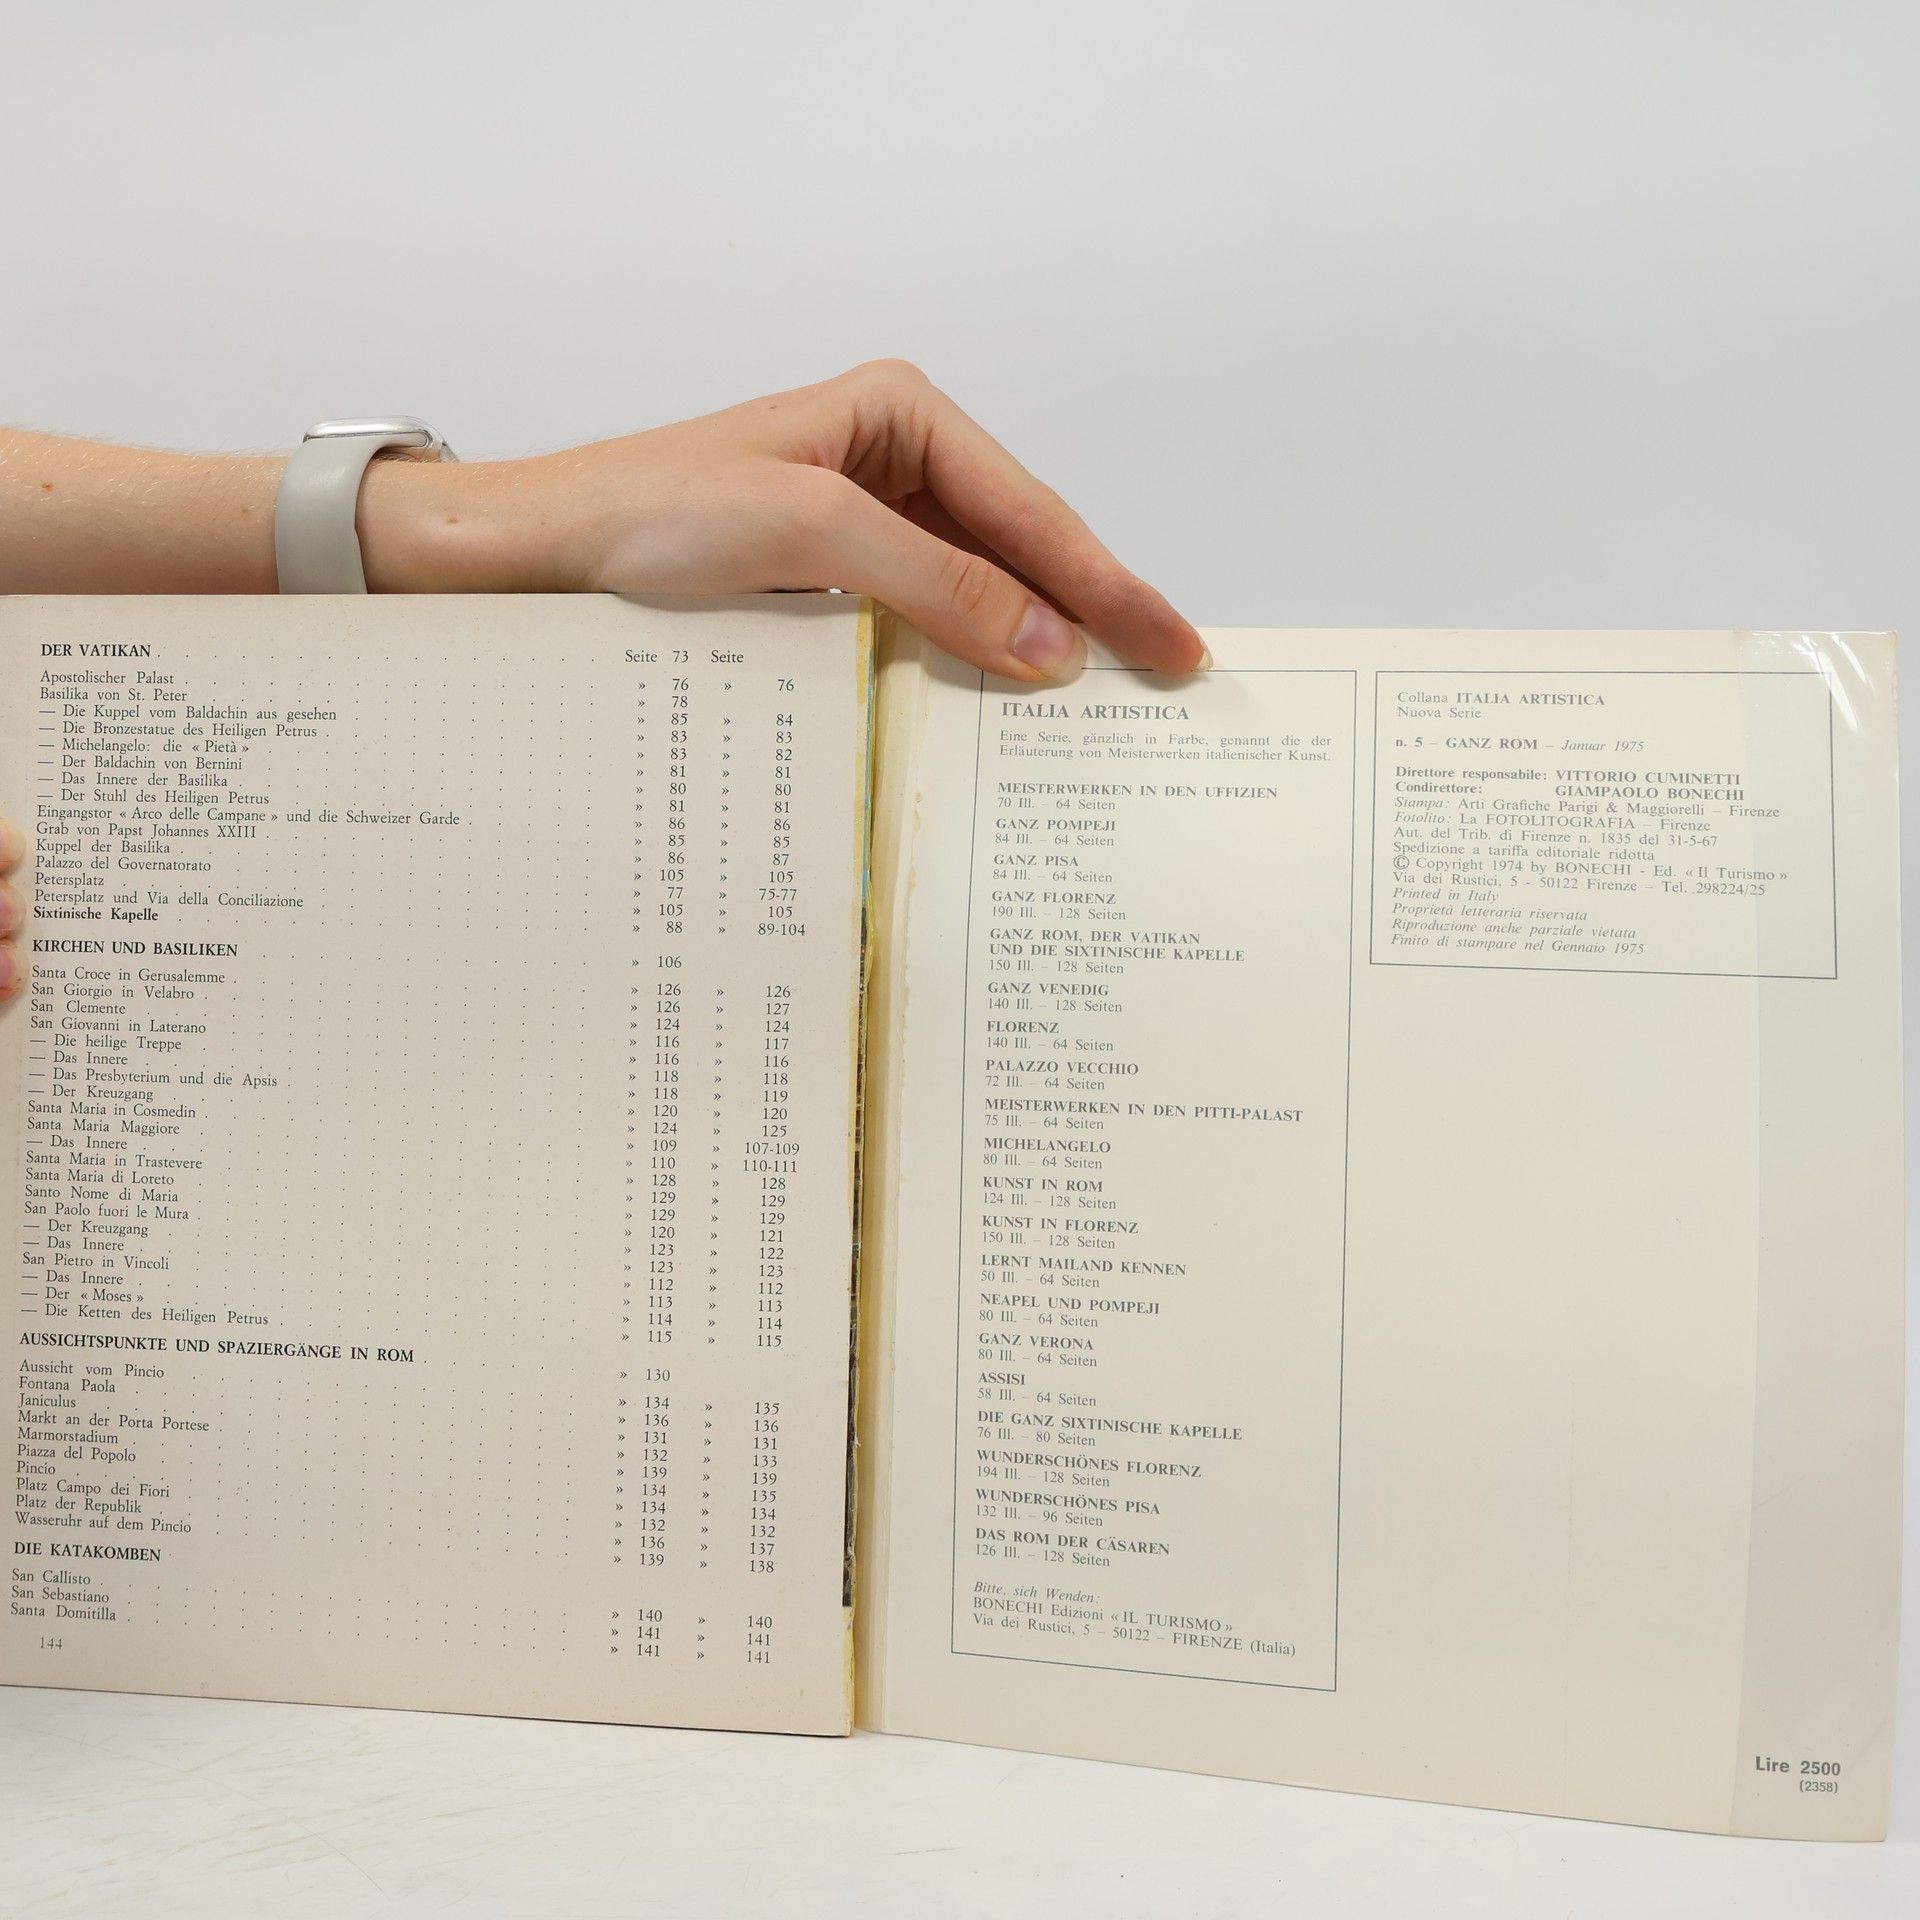 DER VATIKAN . Seite 73 Seite
Apostolischer Palast » 76 » 76
Basilika von St. Peter » 78
— Die Kuppel vom Baldachin aus gesehen » 85 » 84
— Die Bronzestatue des Heiligen Petrus » 83 » 83
— Michelangelo: die « Pietà » » 83 » 82
— Der Baldachin von Bernini » 81 » 81
— Das Innere der Basilika » 80 » 80
— Der Stuhl des Heiligen Petrus » 81 » 81
Eingangstor « Arco delle Campane » und die Schweizer Garde » 86 » 86
Grab von Papst Johannes XXIII » 85 » 85
Kuppel der Basilika » 86 » 87
Palazzo del Governatorato » 105 » 105
Petersplatz » 77 » 75-77
Petersplatz und Via della Conciliazione » 105 » 105
Sixtinische Kapelle » 88 » 89-104
KIRCHEN UND BASILIKEN » 106
Santa Croce in Gerusalemme » 126 » 126
San Giorgio in Velabro » 126 » 127
San Clemente » 124 » 124
San Giovanni in Laterano » 116 » 117
— Die heilige Treppe » 116 » 116
— Das Innere » 118 » 118
— Das Presbyterium und die Apsis » 118 » 119
— Der Kreuzgang » 120 » 120
Santa Maria in Cosmedin » 124 » 125
Santa Maria Maggiore » 109 » 107-109
— Das Innere » 110 » 110-111
Santa Maria in Trastevere » 128 » 128
Santa Maria di Loreto » 129 » 129
Santo Nome di Maria » 129 » 129
San Paolo fuori le Mura » 120 » 121
— Der Kreuzgang » 123 » 122
— Das Innere » 123 » 123
San Pietro in Vincoli » 112 » 112
— Das Innere » 113 » 113
— Der « Moses » » 114 » 114
— Die Ketten des Heiligen Petrus » 115 » 115
AUSSICHTSPUNKTE UND SPAZIERGÄNGE IN ROM » 130
Aussicht vom Pincio » 134 » 135
Fontana Paola » 136 » 136
Janiculus » 131 » 131
Markt an der Porta Portese » 132 » 133
Marmorstadium » 139 » 139
Piazza del Popolo » 134 » 135
Pincio » 134 » 134
Platz Campo dei Fiori » 132 » 132
Platz der Republik » 136 » 137
Wasseruhr auf dem Pincio » 139 » 138
DIE KATAKOMBEN
San Callisto » 140 » 140
San Sebastiano » 141 » 141
Santa Domitilla » 141 » 141
144
ITALIA ARTISTICA
Eine Serie, gänzlich in Farbe, genannt die der
Erläuterung von Meisterwerken italienischer Kunst.
MEISTERWERKEN IN DEN UFFIZIEN
70 Ill. – 64 Seiten
GANZ POMPEJI
84 Ill. – 64 Seiten
GANZ PISA
84 Ill. – 64 Seiten
GANZ FLORENZ
190 Ill. – 128 Seiten
GANZ ROM, DER VATIKAN
UND DIE SIXTINISCHE KAPELLE
150 Ill. – 128 Seiten
GANZ VENEDIG
140 Ill. – 128 Seiten
FLORENZ
140 Ill. – 64 Seiten
PALAZZO VECCHIO
72 Ill. – 64 Seiten
MEISTERWERKEN IN DEN PITTI-PALAST
75 Ill. – 64 Seiten
MICHELANGELO
80 Ill. – 64 Seiten
KUNST IN ROM
124 Ill. – 128 Seiten
KUNST IN FLORENZ
150 Ill. – 128 Seiten
LERNT MAILAND KENNEN
50 Ill. – 64 Seiten
NEAPEL UND POMPEJI
80 Ill. – 64 Seiten
GANZ VERONA
80 Ill. – 64 Seiten
ASSISI
58 Ill. – 64 Seiten
DIE GANZ SIXTINISCHE KAPELLE
76 Ill. – 80 Seiten
WUNDERSCHÖNES FLORENZ
194 Ill. – 128 Seiten
WUNDERSCHÖNES PISA
132 Ill. – 96 Seiten
DAS ROM DER CÄSAREN
126 Ill. – 128 Seiten
Bitte, sich Wenden:
BONECHI Edizioni « IL TURISMO »
Via dei Rustici, 5 – 50122 – FIRENZE (Italia)
Collana ITALIA ARTISTICA
Nuova Serie
n. 5 – GANZ ROM – Januar 1975
Direttore responsabile: VITTORIO CUMINETTI
Condirettore: GIAMPAOLO BONECHI
Stampa: Arti Grafiche Parigi & Maggiorelli – Firenze
Fotolito: La FOTOLITOGRAFIA – Firenze
Aut. del Trib. di Firenze n. 1835 del 31-5-67
Spedizione a tariffa editoriale ridotta
© Copyright 1974 by BONECHI - Ed. « Il Turismo »
Via dei Rustici, 5 - 50122 Firenze – Tel. 298224/25
Printed in Italy
Proprietà letteraria riservata
Riproduzione anche parziale vietata
Finito di stampare nel Gennaio 1975
Lire 2500
(2358)